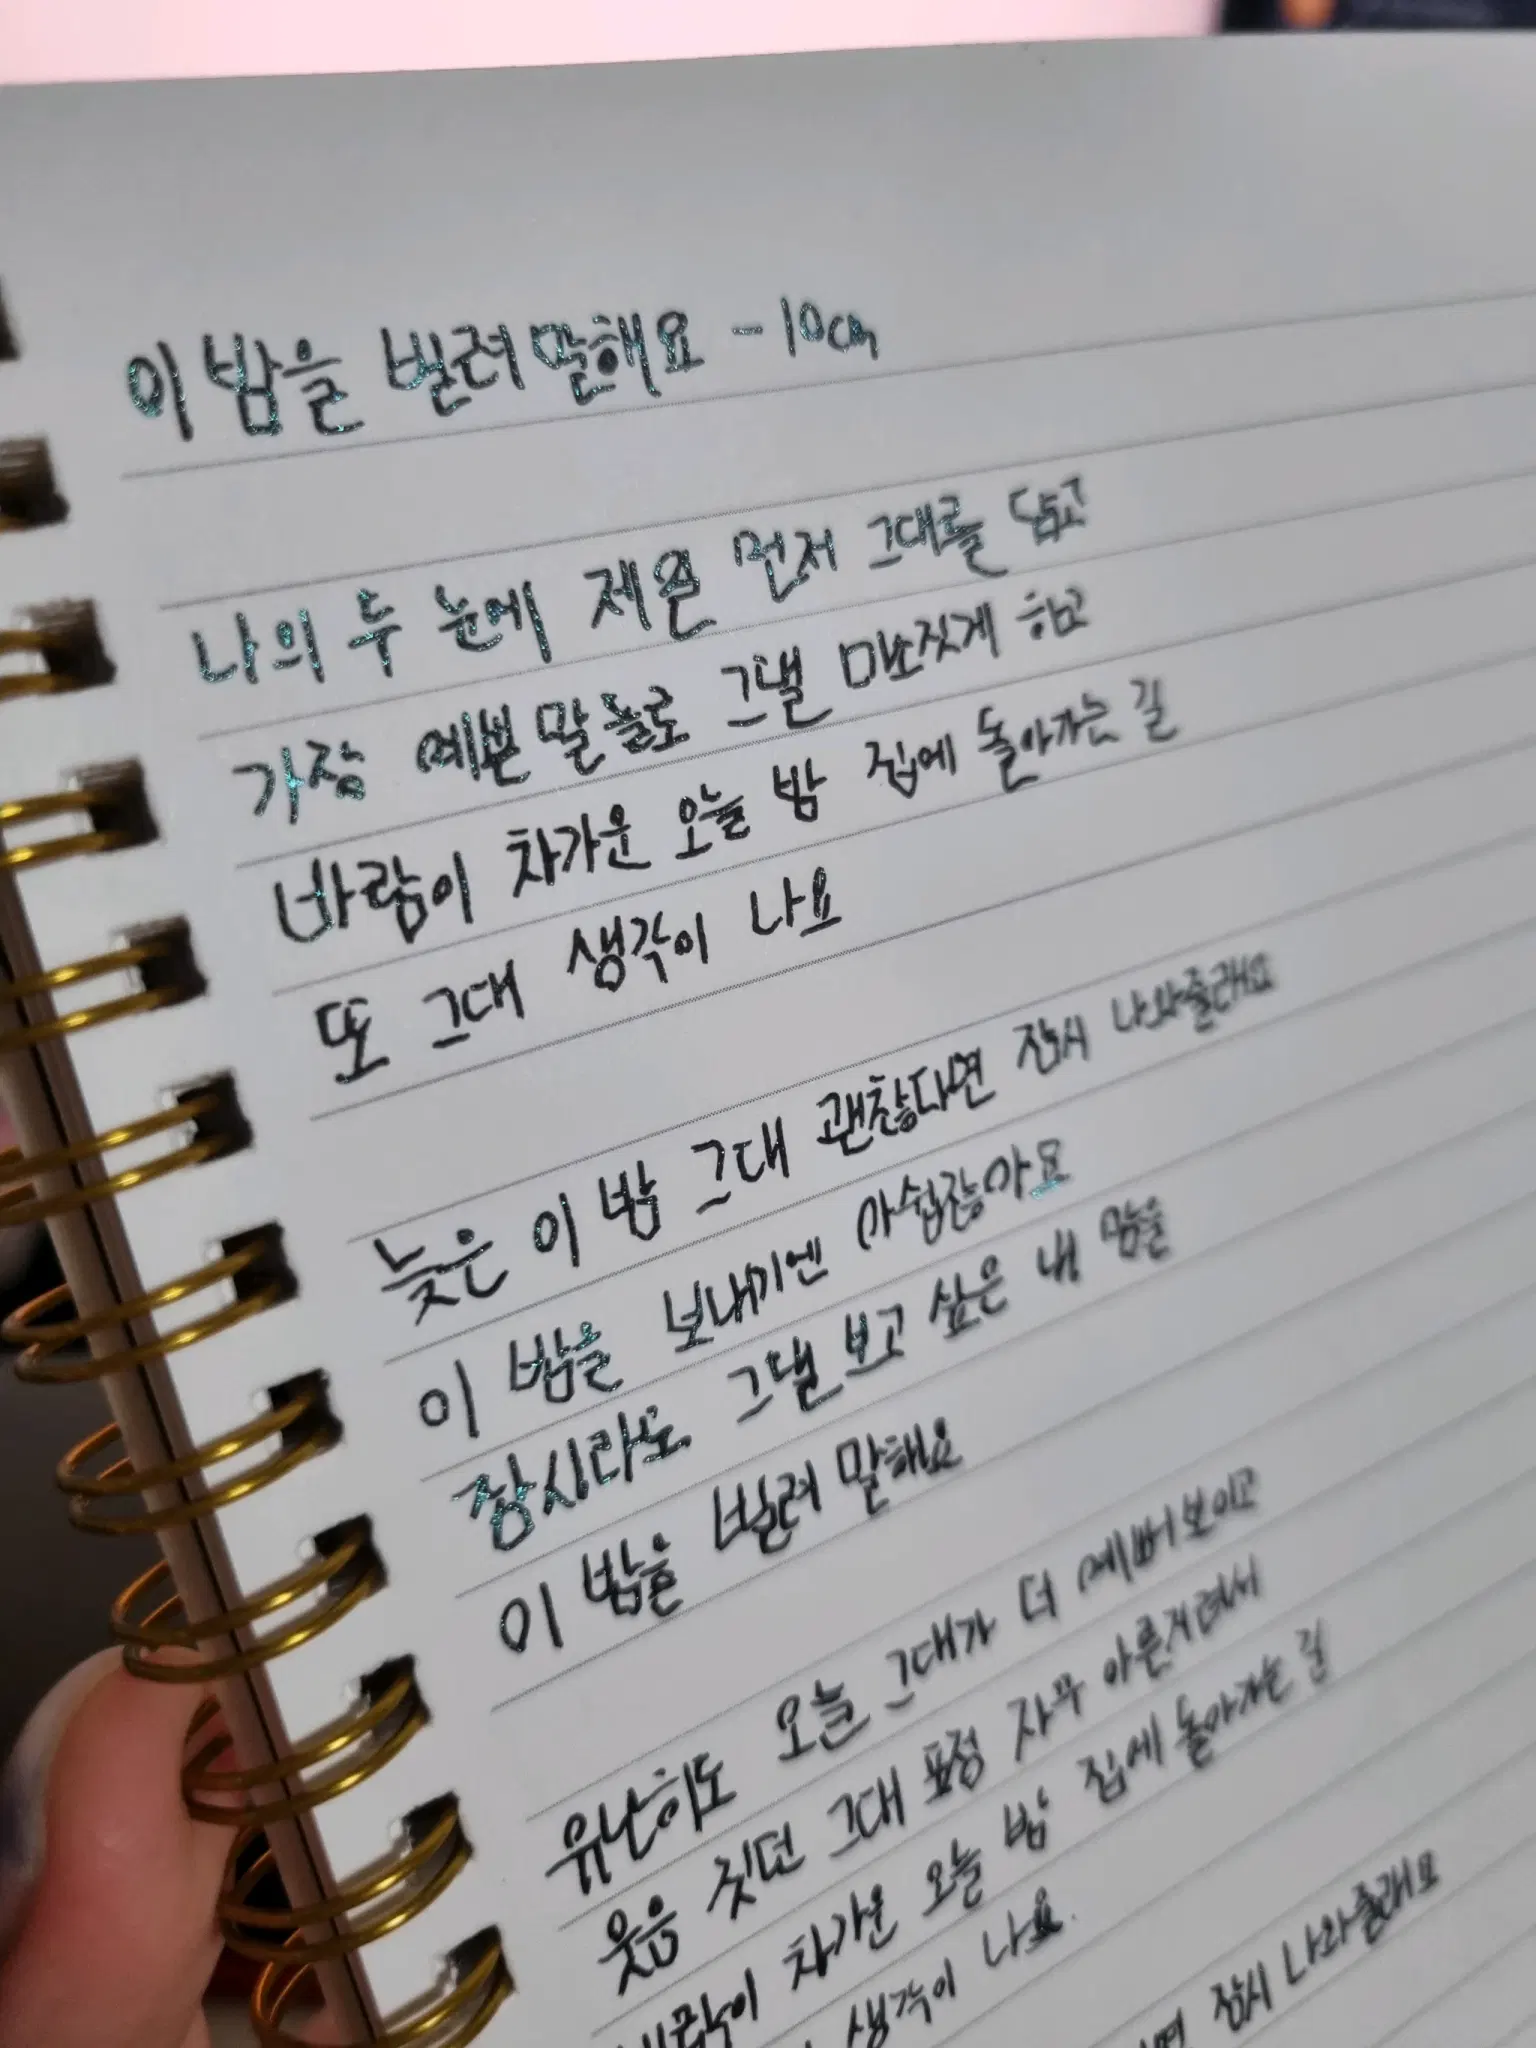 이 밤을 빌려 말해요 - 10cm
나의 두 눈에 제일 먼저 그대를 담고
가장 예쁜 말들로 그댈 미소짓게 하고
바람이 차가운 오늘 밤 집에 돌아가는 길
또 그대 생각이 나요
늦은 이 밤 그대 괜찮다면 잠시 나와줄래요
이 밤을 보내기엔 아쉽잖아요
잠시라도 그댈 보고 싶은 내 맘을
이 밤을 빌려 말해요
유난히도 오늘 그대가 더 예뻐보이고
웃음 짓던 그대 표정 자꾸 아른거려서
차가운 오늘 밤 집에 돌아가는 길
생각이 나요.
잠시 나와줄래요